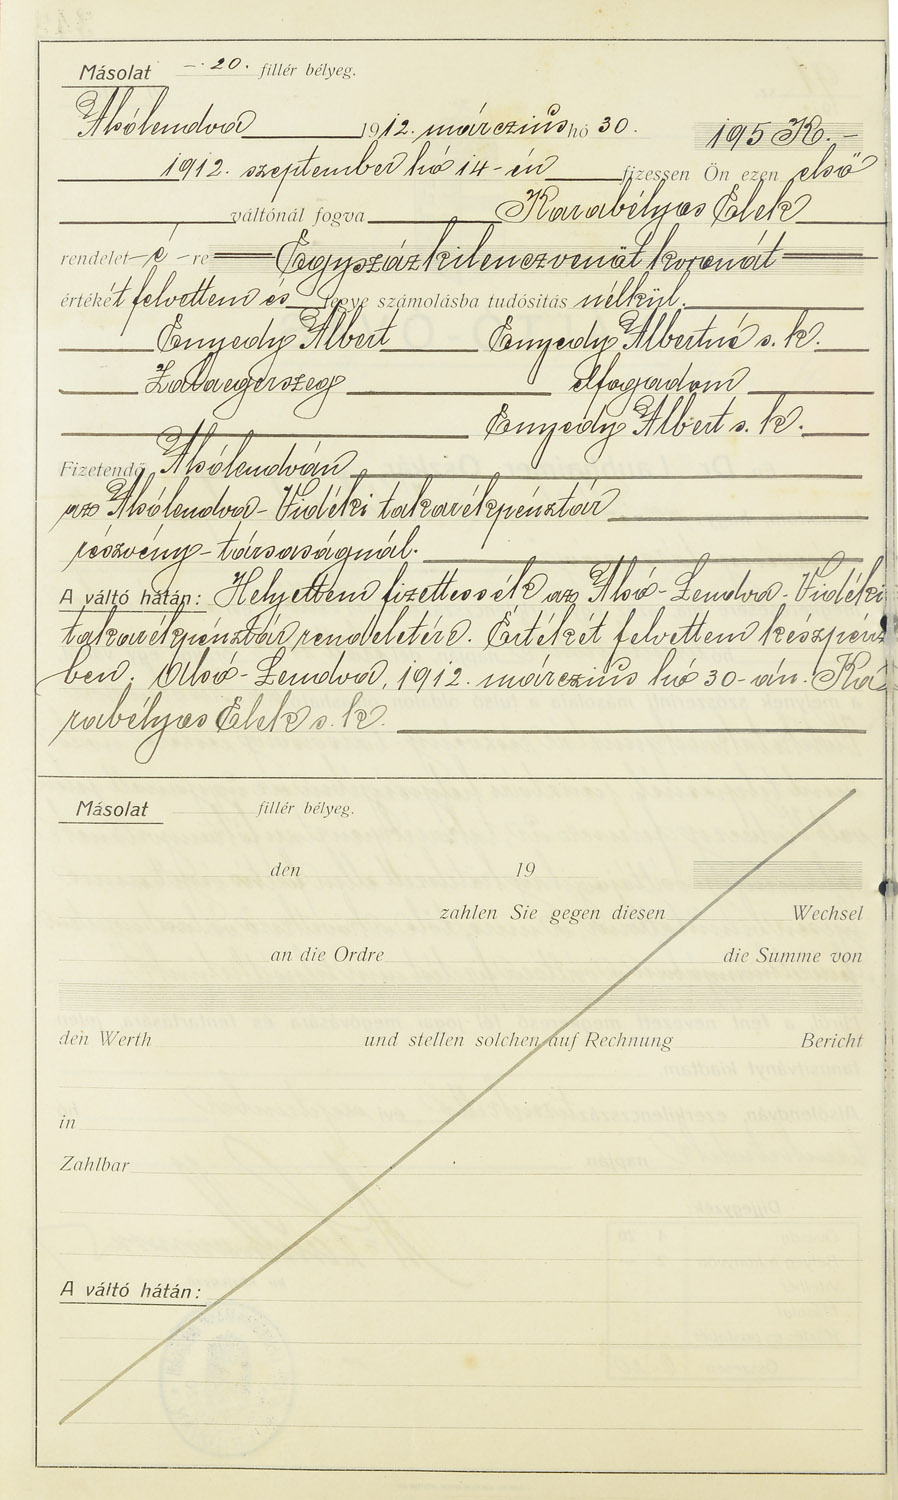 Másolat —·20· fillér bélyeg.
Alsólendva 1912. márczius hó 30. 195 K.–
1912. szeptember hó 14-én fizessen Ön ezen első
váltónál fogva Karabélyos Elek
rendelet—é—re Egyszázkilenczvenöt koronát
értékét felvettem és tegye számolásba tudósitás nélkül.
Enyedy Albert Enyedy Albertné s. k.
Zalaegerszeg elfogadom
Enyedy Albert s. k.
Fizetendő Alsólendván
az Alsólendva-Vidéki takarékpénztár
részvény-társaságnál.
A váltó hátán: Helyettem fizettessék az Alsó-Lendva-Vidéki
takarékpénztár rendeletére. Értékét felvettem készpénz
ben. Alsó-Lendva, 1912. márczius hó 30-án. Ka
rabélyos Elek s. k.
Másolat fillér bélyeg.
den 19
zahlen Sie gegen diesen Wechsel
an die Ordre die Summe von
den Werth und stellen solchen auf Rechnung Bericht
in
Zahlbar
A váltó hátán: